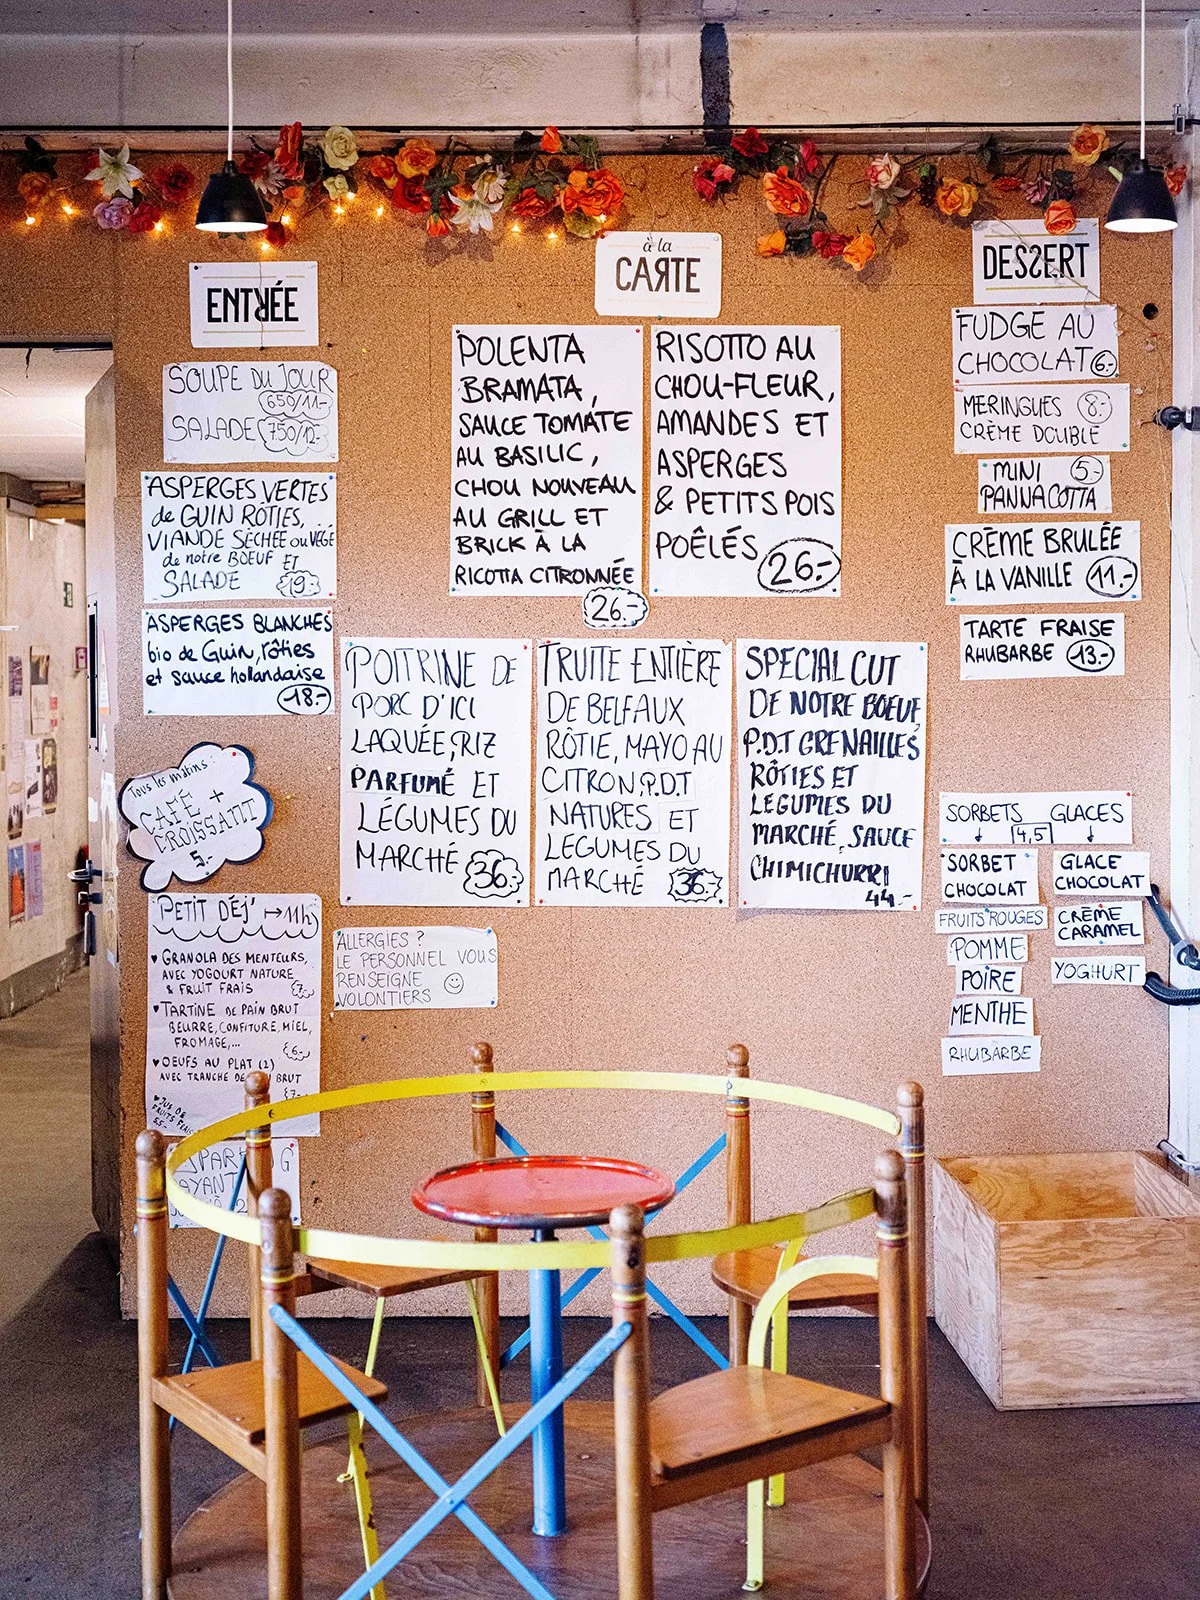 ENTRÉE
SOUPE DU JOUR
650/11.-
SALADE 750/12.-
ASPERGES VERTES
de GUIN RÔTIES,
VIANDE SÈCHÉE ou VÉGÉ
de notre BOEUF ET
SALADE 19.-
ASPERGES BLANCHES
bio de Guin, rôties
et sauce hollandaise
18.-
Tous les matins :
CAFÉ +
CROISSANT
5.-
PETIT DÉJ' → 11h
♥ GRANOLA DES MENTEURS,
AVEC YOGOURT NATURE
& FRUIT FRAIS 7.-
♥ TARTINE DE PAIN BRUT
BEURRE, CONFITURE, MIEL,
FROMAGE,...
6.-
♥ OEUFS AU PLAT (2)
AVEC TRANCHE DE BRUT
7.-
♥ JUS DE
FRUITS FRAIS
à la
CARTE
POLENTA
BRAMATA,
SAUCE TOMATE
AU BASILIC,
CHOU NOUVEAU
AU GRILL ET
BRICK À LA
RICOTTA CITRONNÉE
26.-
RISOTTO AU
CHOU-FLEUR,
AMANDES ET
ASPERGES
& PETITS POIS
POÊLÉS 26.-
POITRINE DE
PORC D'ICI
LAQUÉE, RIZ
PARFUMÉ ET
LÉGUMES DU
MARCHÉ 36.-
TRUITE ENTIÈRE
DE BELFAUX
RÔTIE, MAYO AU
CITRON, P.D.T
NATURES ET
LEGUMES DU
MARCHÉ 36.-
SPECIAL CUT
DE NOTRE BOEUF,
P.D.T GRENAILLES
RÔTIES ET
LÉGUMES DU
MARCHÉ, SAUCE
CHIMICHURRI
44.-
ALLERGIES ?
LE PERSONNEL VOUS
RENSEIGNE
VOLONTIERS ☺
DESSERT
FUDGE AU
CHOCOLAT 6.-
MERINGUES 8.-
CRÈME DOUBLE
MINI 5.-
PANNACOTTA
CRÈME BRULÉE
À LA VANILLE 11.-
TARTE FRAISE
RHUBARBE 13.-
SORBETS GLACES
4,5
SORBET
CHOCOLAT
FRUITS ROUGES
POMME
POIRE
MENTHE
RHUBARBE
GLACE
CHOCOLAT
CRÈME
CARAMEL
YOGHURT